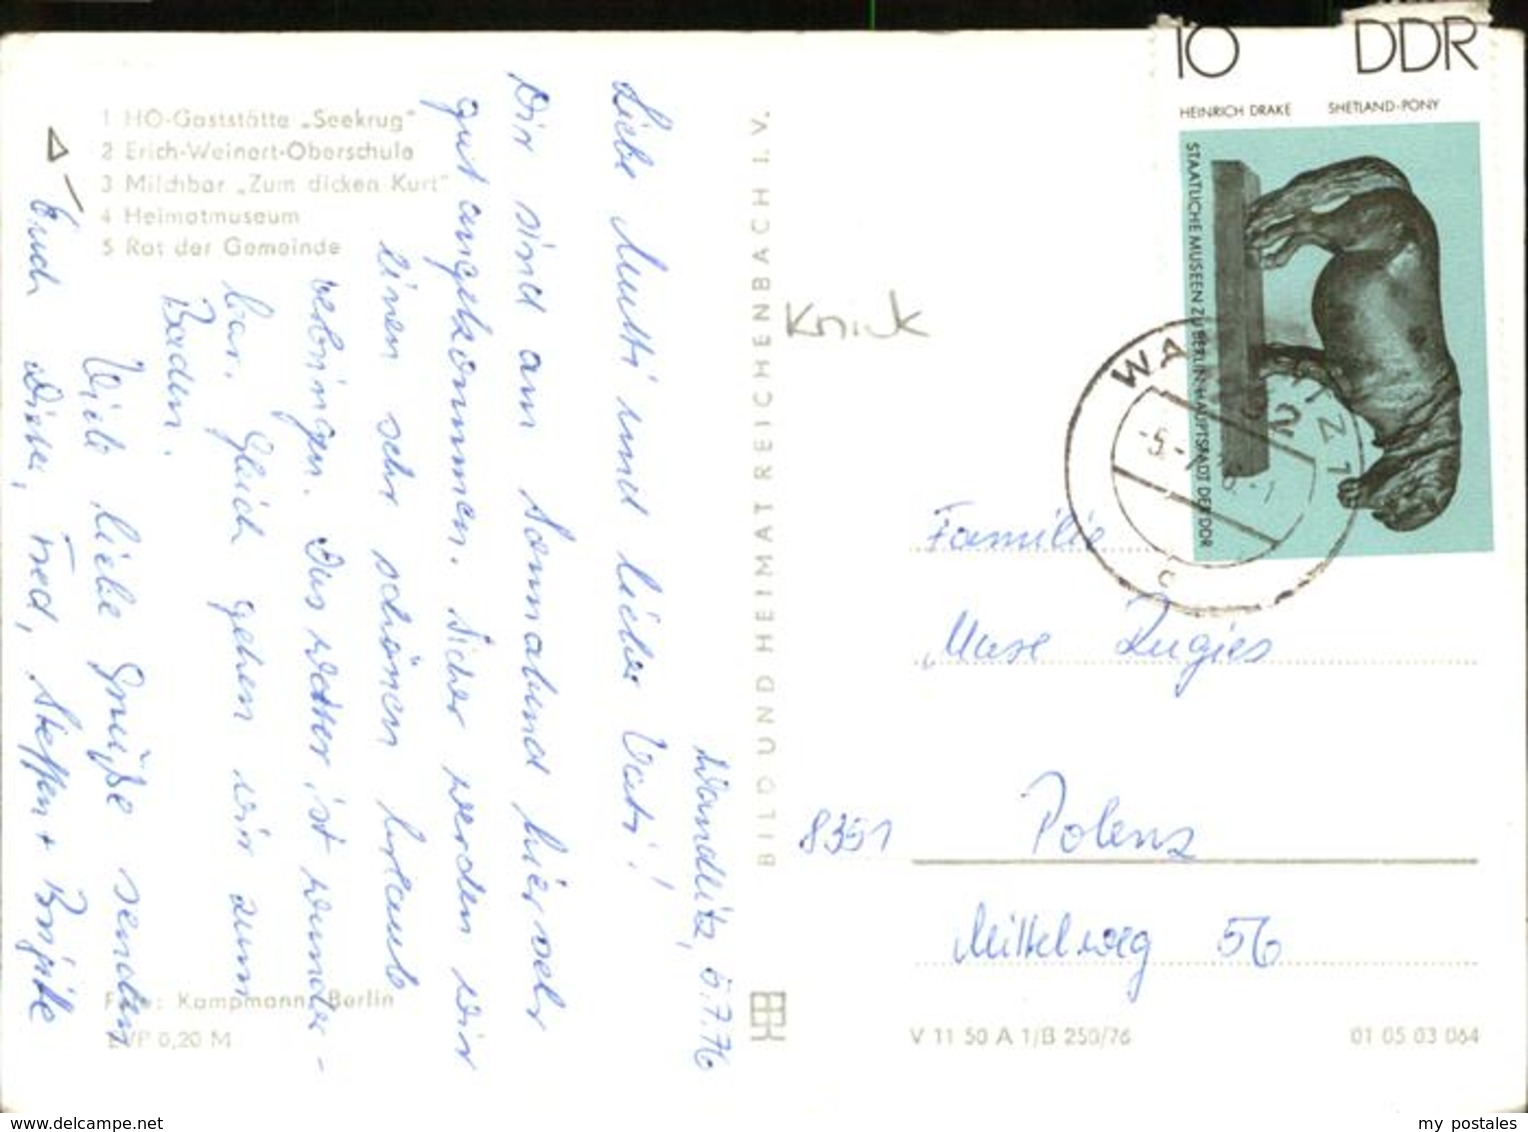 1 HO-Gaststätte „Seekrug"
2 Erich-Weinert-Oberschule
3 Milchbar „Zum dicken Kurt"
4 Heimatmuseum
5 Rat der Gemeinde
Wandlitz, 5.7.76
Liebe Mutti und lieber Vati!
Wir sind am Sonnabend hier sehr
gut angekommen. Sicher werden wir
einen sehr schönen Urlaub
verbringen. Das Wetter ist wunder-
bar. Gleich gehen wir zum
Baden.
Viele liebe Grüße senden
Euch Dieter, Fred, Steffen + Brigitte
Foto: Kampmann, Berlin
EVP 0,20 M
BILD UND HEIMAT REICHENBACH I. V.
Knick
10 DDR
HEINRICH DRAKE SHETLAND-PONY
STAATLICHE MUSEEN ZU BERLIN·HAUPTSTADT DER DDR
Familie
8351 Polenz
Mittelweg 56
V 11 50 A 1/B 250/76
01 05 03 064
www.delcampe.net
my postales